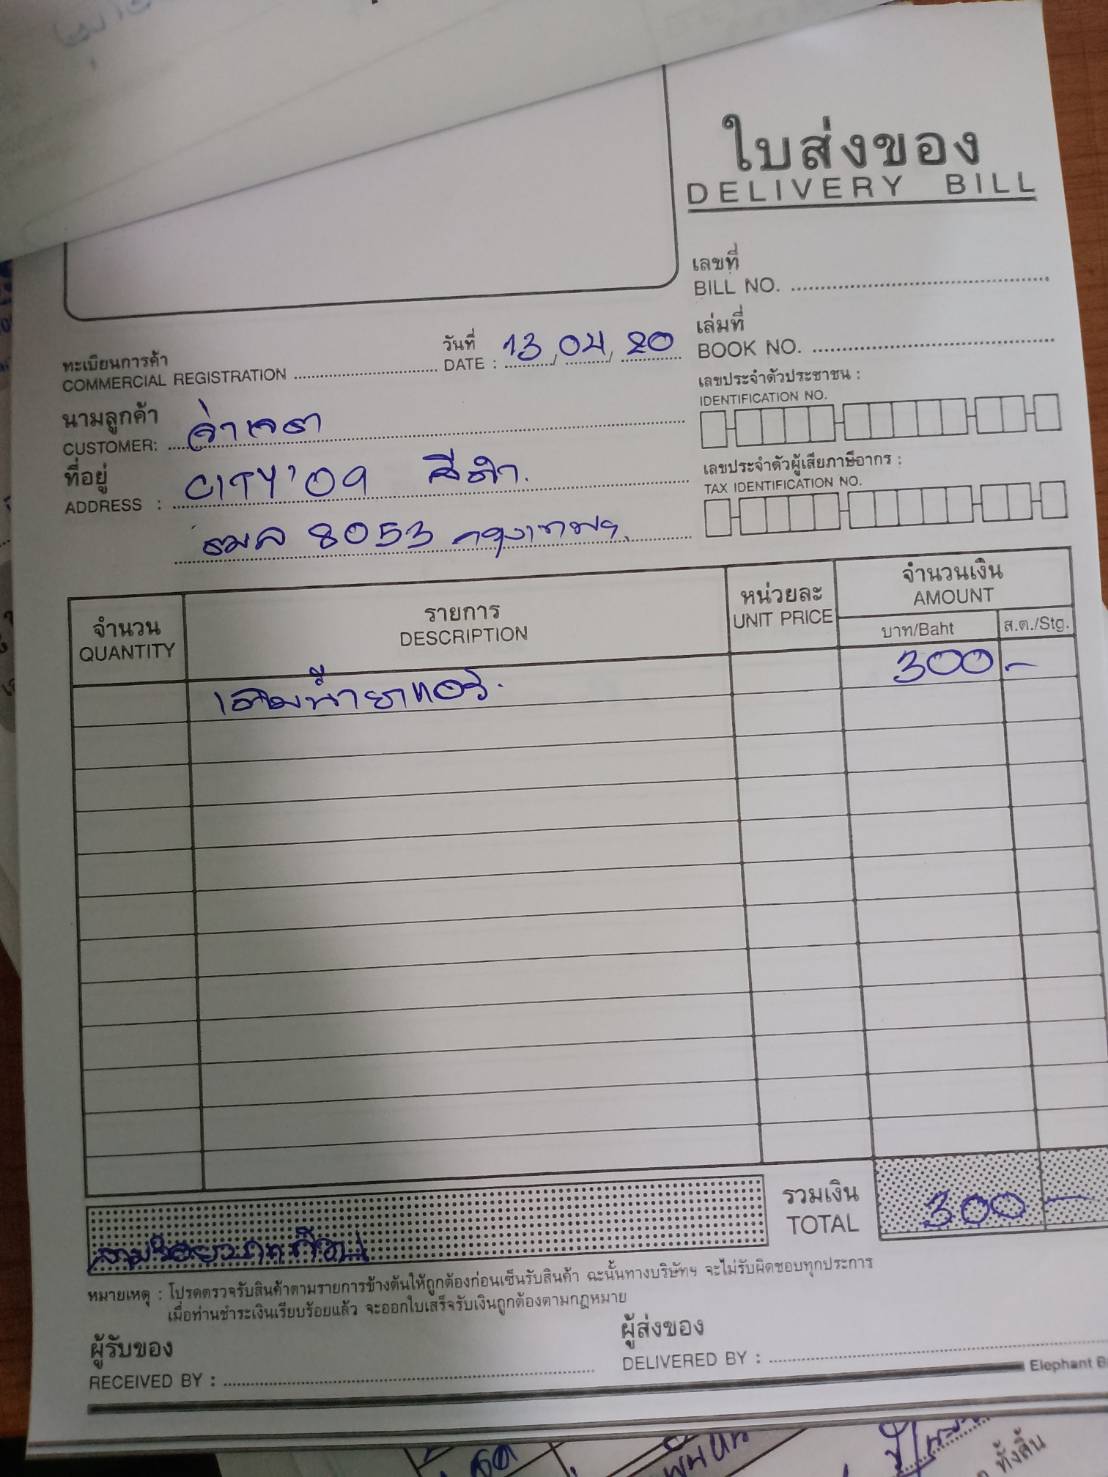 ใบส่งของ
DELIVERY BILL
เลขที่
BILL NO.
เล่มที่
BOOK NO.
ทะเบียนการค้า
COMMERCIAL REGISTRATION
วันที่
DATE : 13, 04, 20
เลขประจำตัวประชาชน :
IDENTIFICATION NO.
นามลูกค้า
CUSTOMER: จ่าเจต
ที่อยู่
ADDRESS : CITY'09 สีดำ.
ธมล 8053 กรุงเทพฯ.
เลขประจำตัวผู้เสียภาษีอากร :
TAX IDENTIFICATION NO.
จำนวน
QUANTITY
รายการ
DESCRIPTION
หน่วยละ
UNIT PRICE
จำนวนเงิน
AMOUNT
บาท/Baht
ส.ต./Stg.
เติมน้ำยาแอร์. 300 -
รวมเงิน
TOTAL
300 -
สามร้อยบาทถ้วน
หมายเหตุ : โปรดตรวจรับสินค้าตามรายการข้างต้นให้ถูกต้องก่อนเซ็นรับสินค้า ฉะนั้นทางบริษัทฯ จะไม่รับผิดชอบทุกประการ
เมื่อท่านชำระเงินเรียบร้อยแล้ว จะออกใบเสร็จรับเงินถูกต้องตามกฎหมาย
ผู้รับของ
RECEIVED BY :
ผู้ส่งของ
DELIVERED BY :
Elephant
ทั้งสิ้น